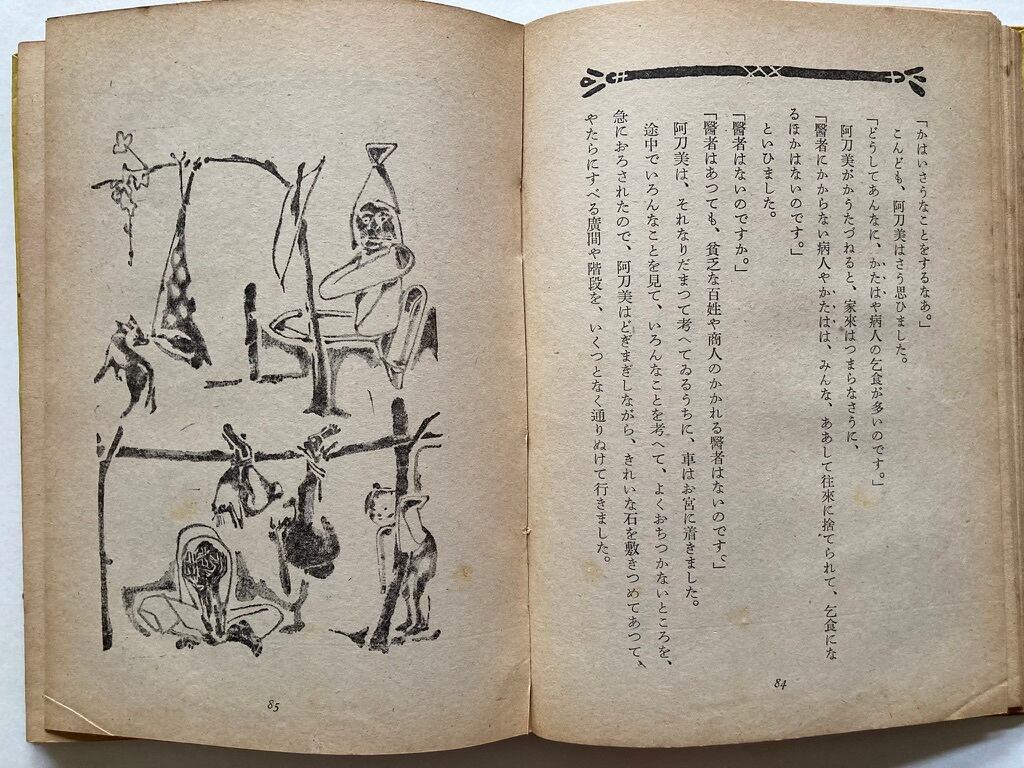 「かはいさうなことをするなあ。」
こんども、阿刀美はさう思ひました。
「どうしてあんなに、かたはや病人の乞食が多いのです。」
阿刀美がかうたづねると、家來はつまらなさうに、
「醫者にかからない病人やかたはは、みんな、ああして往來に捨てられて、乞食にな
るほかはないのです。」
といひました。
「醫者はないのですか。」
「醫者はあつても、貧乏な百姓や商人のかかれる醫者はないのです。」
阿刀美は、それなりだまつて考へてゐるうちに、車はお宮に着きました。
途中でいろんなことを見て、いろんなことを考へて、よくおちつかないところを、
急におろされたので、阿刀美はどぎまぎしながら、きれいな石を敷きつめてあつて、
やたらにすべる廣間や階段を、いくつとなく通りぬけて行きました。
84
85